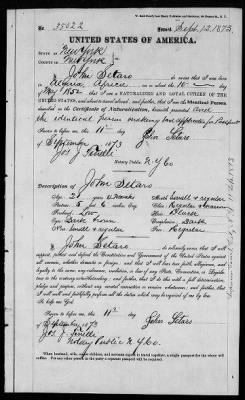 No. 35022 Issued Sept. 12, 1873
UNITED STATES OF AMERICA.
STATE OF New York
COUNTY OF New York
I, John Setaro do swear that I was born
in on or about the 10 day
of May 1852 that I am a NATURALIZED AND LOYAL CITIZEN OF THE
UNITED STATES, and about to travel abroad; and further, that I am the Identical Person
described in the Certificate of Naturalization herewith presented and
the identical person making an Application for Passport
Sworn to before me, this 11th day
of September 1873 John Setaro
Jos. J.
Notary Public. N.Y. Co
Description of John Setaro
Age: 21 years Mouth: Small & regular
Stature: 5 feet 6 inches, Eng. Chin:
Forehead: Low Hair:
Eyes: Dark Brown Complexion: Dark
Nose: Small & regular Face: Regular
I, John Setaro do solemnly swear that I will
support, protect and defend the Constitution and Government of the United States against
all enemies, whether domestic or foreign; and that I will bear true faith, allegiance, and
loyalty to the same, any ordinance, resolution or law of any State, Convention, or Legisla-
ture to the contrary notwithstanding; and further, that I do this with a full determination,
pledge and purpose, without any mental reservation or evasion whatsoever; and further, that
I will well and faithfully perform all the duties which may be required of me by law.
So help me God.
Sworn to before me, this 11th day
of September 1873 John Setaro
Jos. J.
Notary Public N.Y. Co.
When husband, wife, minor children, and servants expect to travel together, a single passport for the whole
will suffice. For any other person in the party a separate passport will be required.